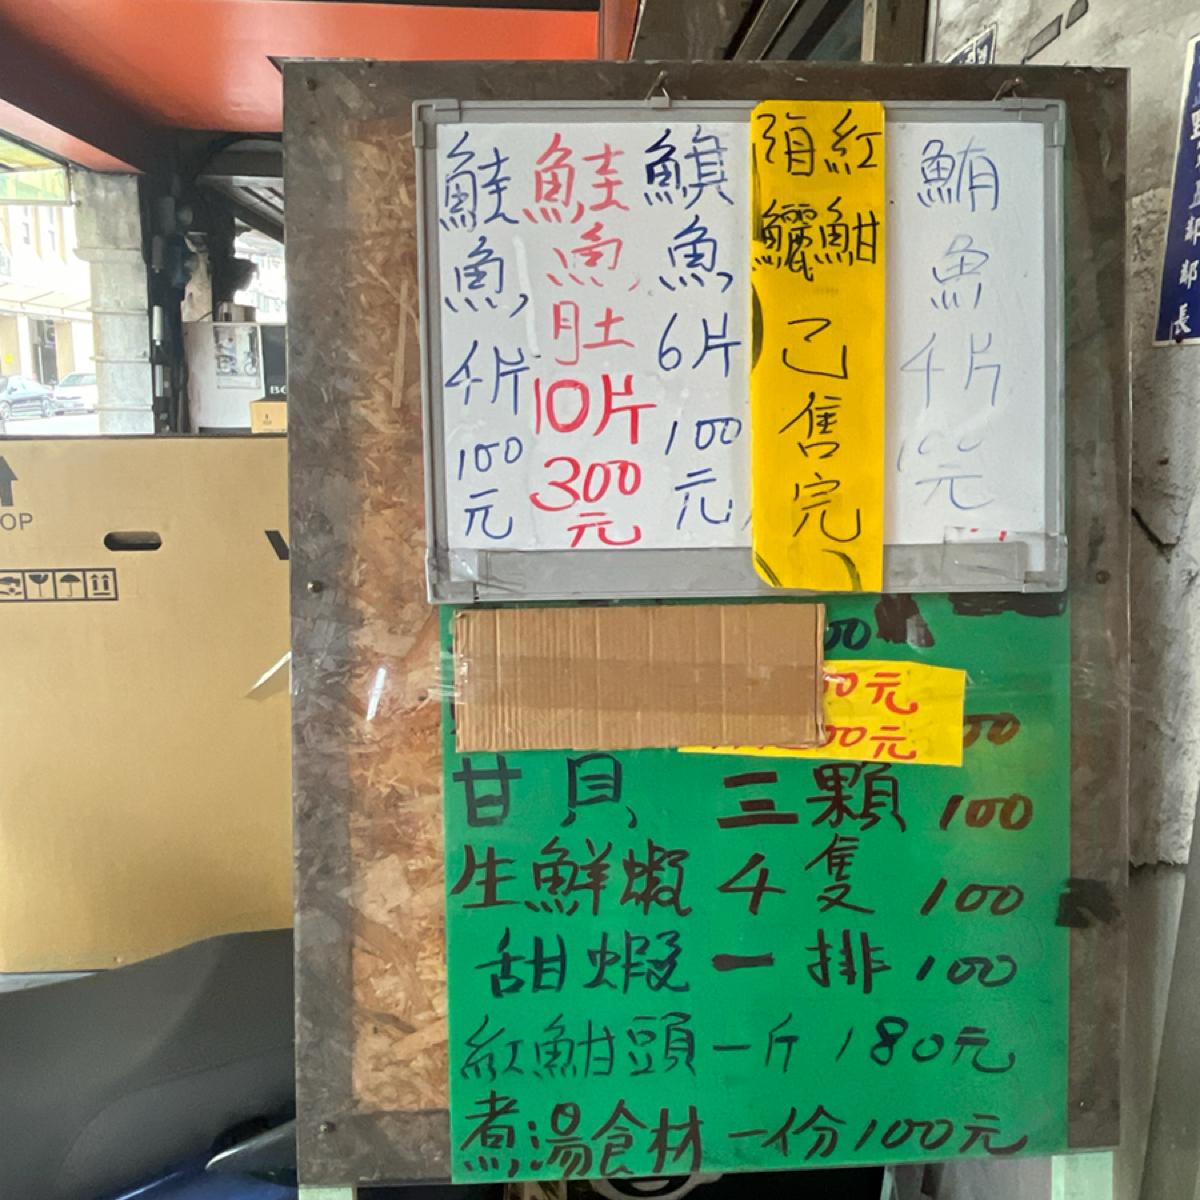 鮪魚4片100元
紅魽
須鱺
己售完
鯕魚6片100元
鮭魚肚10片300元
鮭魚4片100元
00
00元
00元
00
甘貝 三顆 100
生鮮蝦 4隻 100
甜蝦 一排 100
紅魽頭一斤 180元
煮湯食材 一份100元
部長
OP